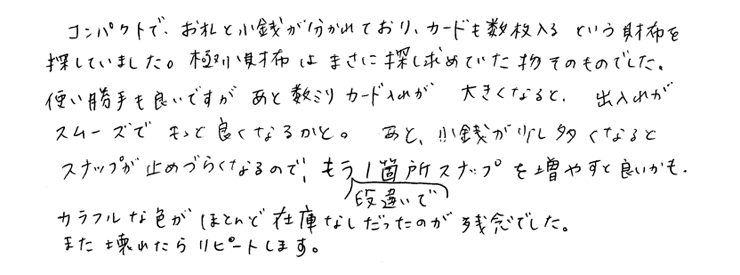 コンパクトで、お札と小銭が分かれており、カードも数枚入る という財布を
探していました。極小財布はまさに探し求めていた物そのものでした。
使い勝手も良いですが あと数ミリ カード入れが 大きくなると、出入れが
スムーズで もっと良くなるかと。 あと、小銭が少し多くなると
スナップが止めづらくなるので、もう1箇所スナップを増やすと良いかも.
段違いで
カラフルな色が ほとんど在庫なしだったのが 残念でした。
また壊れたら リピートします。